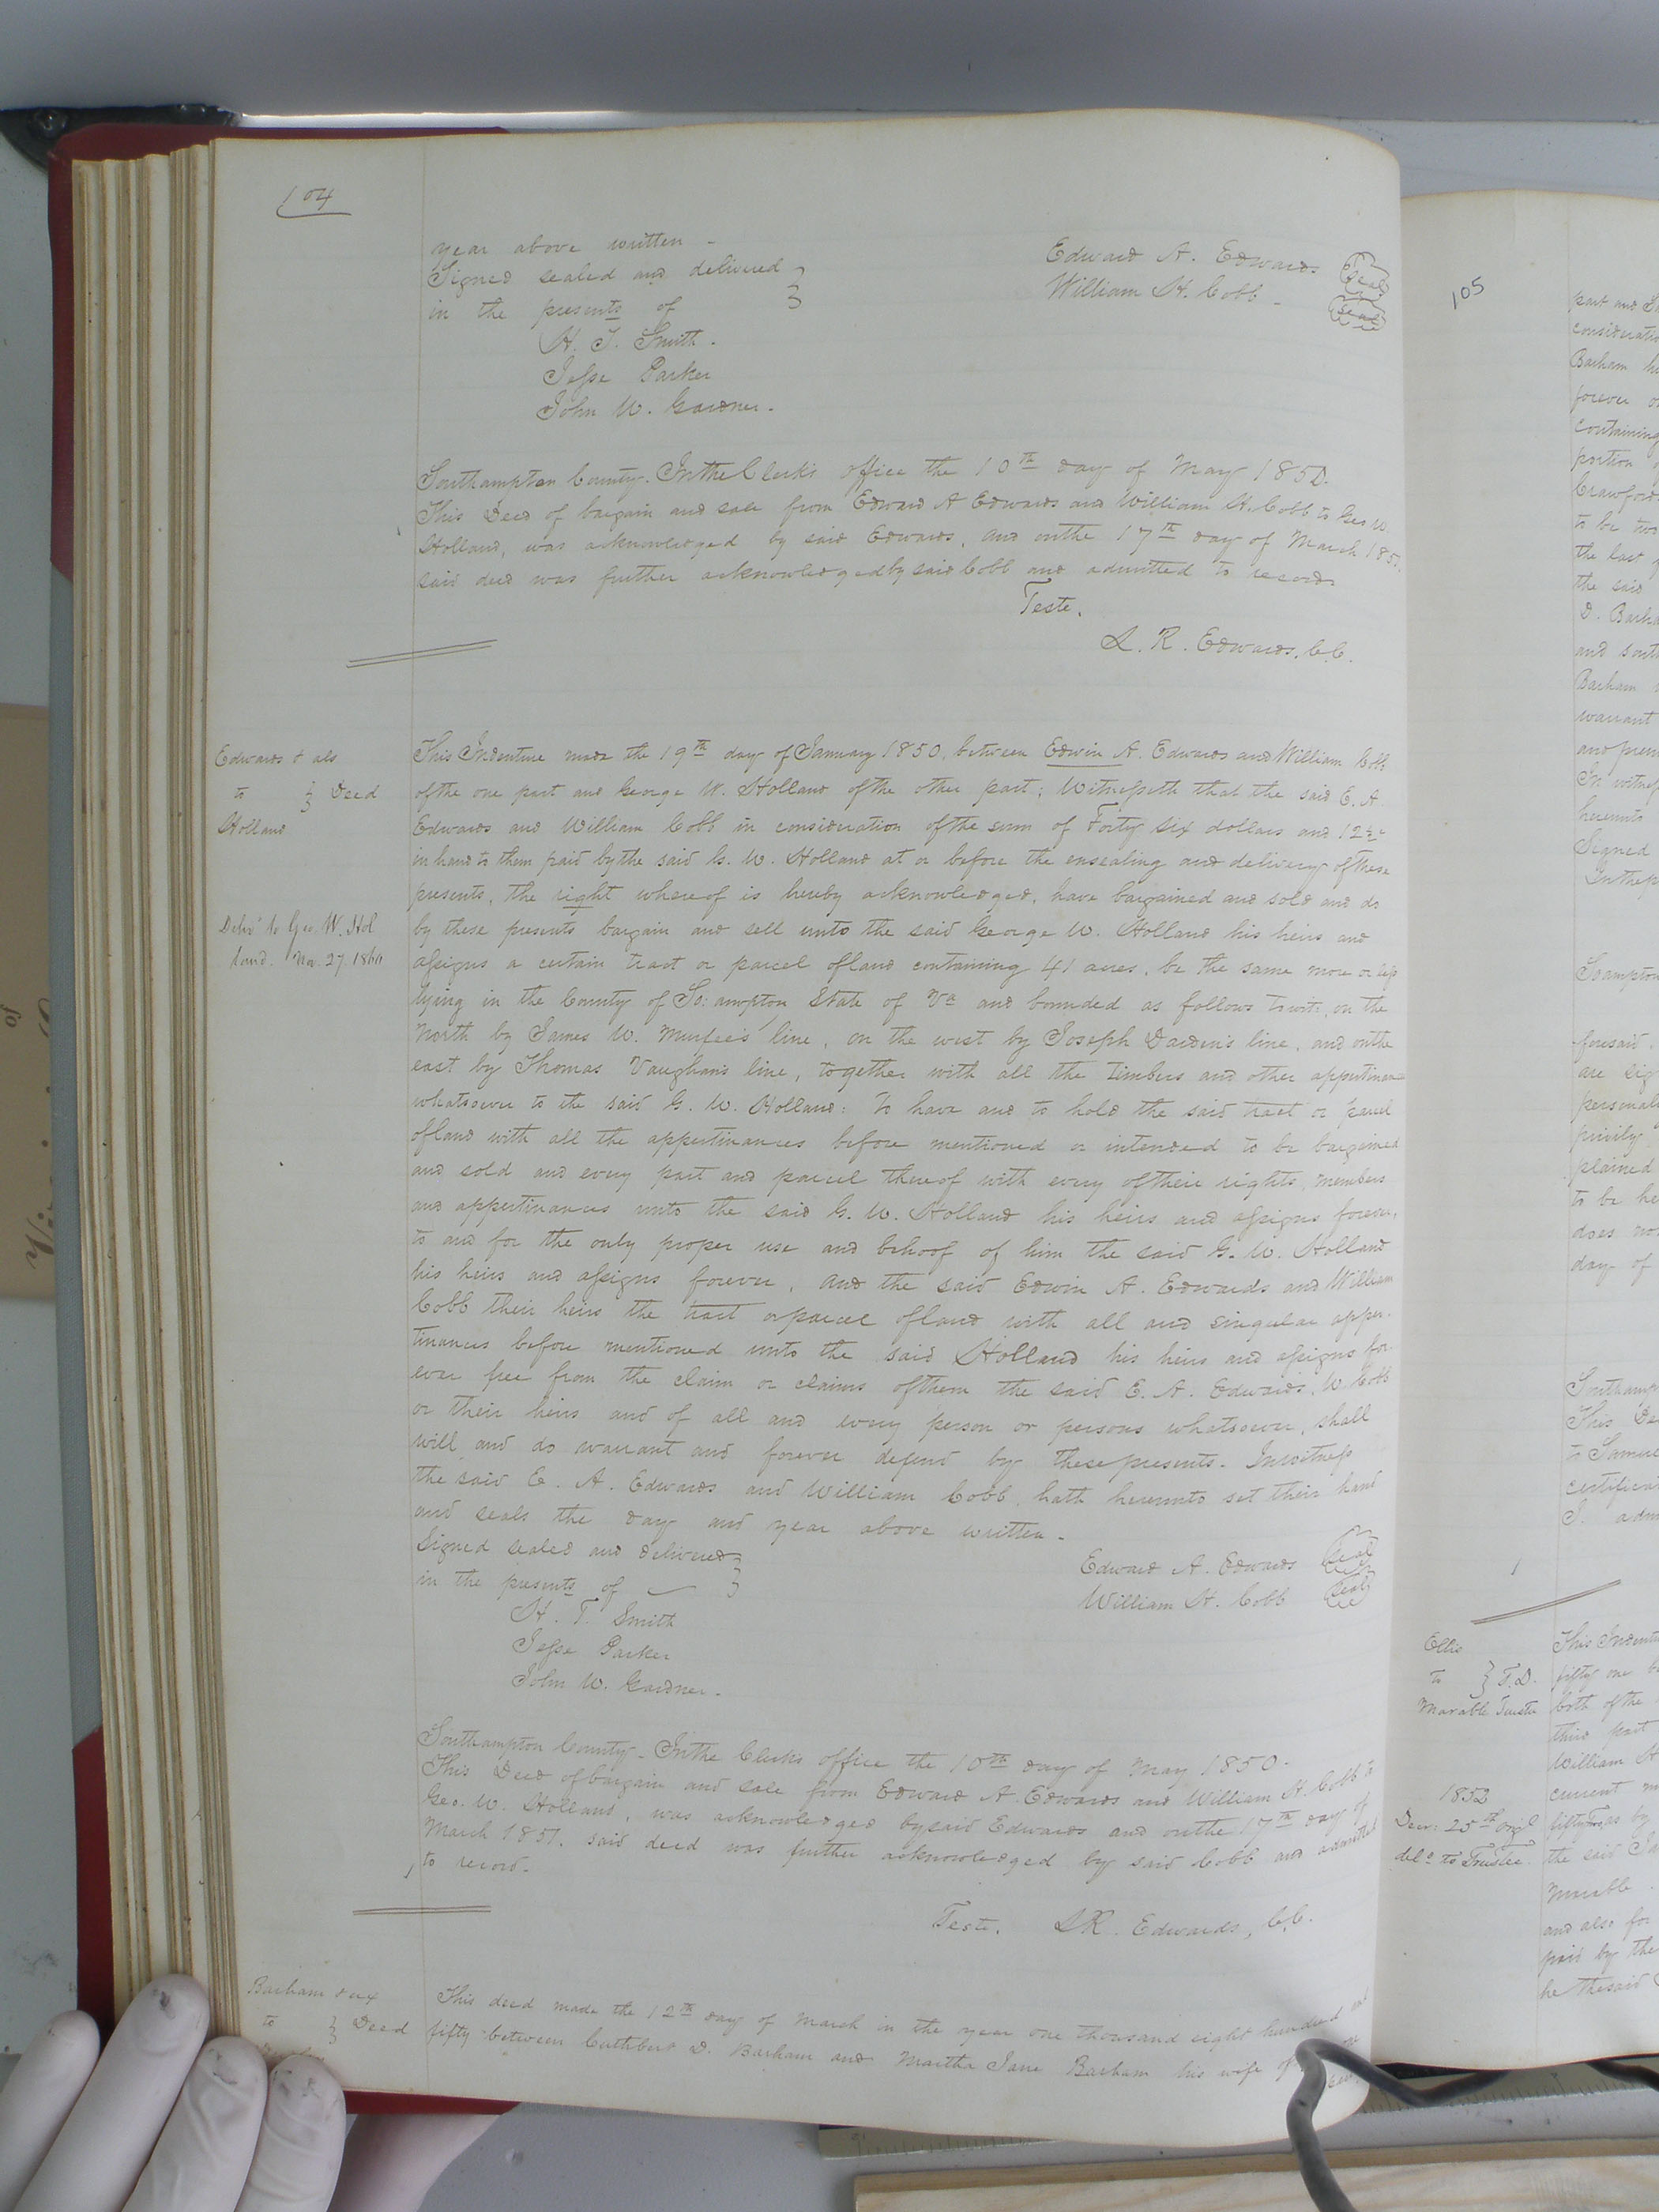 104
year above written -
Signed sealed and delivered }
in the presents of }
H. T. Smith.
Jesse Parker
John W. Gardner.
Edward A. Edwards seal
William H. Cobb - seal
Southampton County. In the Clerks office the 10th day of May 1850.
This Deed of bargain and sale from Edward A Edwards and William H. Cobb to Geo W.
Holland, was acknowledged by said Edwards, and on the 17th day of March 1851.
said deed was further acknowledged by said Cobb and admitted to record.
Teste.
L. R. Edwards. C.C.
Edwards & als
to } Deed
Holland
Deld to Geo. W. Hol
land. Nov. 27. 1860
This Indenture made the 19th day of January 1850, between Edwin A. Edwards and William Cobb
of the one part and George W. Holland of the other part; Witnesseth that the said E. A.
Edwards and William Cobb in consideration of the sum of Forty six dollars and 12½c
in hand to them paid by the said G. W. Holland at or before the ensealing and delivery of these
presents, the right whereof is hereby acknowledged, have bargained and sold and do
by these presents bargain and sell unto the said George W. Holland his heirs and
assigns a certain tract or parcel of land containing 41 acres, be the same more or less
lying in the County of So:ampton State of Va and bounded as follows towit: on the
North by James W. Murfee's line, on the west by Joseph Darden's line, and on the
east by Thomas Vaughan's line, together with all the timbers and other appertinan
whatsoever to the said G. W. Holland: To have and to hold the said tract or parcel
of land with all the appertinances before mentioned or intended to be bargained
and sold and every part and parcel thereof with every of their rights, members
and appertinances unto the said G. W. Holland his heirs and assigns forever,
to and for the only proper use and behoof of him the said G. W. Holland
his heirs and assigns forever, and the said Edwin A. Edwards and William
Cobb their heirs the tract or parcel of land with all and singular apper-
tinances before mentioned unto the said Holland his heirs and assigns for
ever free from the claim or claims of them the said E. A. Edwards, W. Cobb
or their heirs and of all and every person or persons whatsoever, shall
will and do warrant and forever defend by these presents. In witness
the said E. A. Edwards and William Cobb, hath hereunto set their hand
and seals the day and year above written -
Signed sealed and delivered }
in the presents of }
H. T. Smith
Jesse Parker
John W. Gardner.
Edward A. Edwards seal
William H. Cobb seal
Southampton County - In the Clerks office the 10th day of May 1850.
This Deed of bargain and sale from Edward A. Edwards and William H. Cobb to
Geo. W. Holland, was acknowledged by said Edwards and on the 17th day of
March 1851. said deed was further acknowledged by said Cobb and admitted
to record.
Teste. L R. Edwards, C.C.
Barham & ux
to } Deed
This deed made the 12th day of March in the year one thousand eight hundred and
fifty between Cuthbert D. Barham and Martha Jane Barham his wife of
105
part and
Barham
forever
containing
portion
to be two
the last
the said
D. Barha
and sout
Barham
warrant
and prem
In witnes
hereunto
Signed
In the p
So:ampton
foresaid.
are sig
personal
privily
plained
to be he
does not
day of
Southamp
This De
to Samue
certifica
adm
Ellis
to } T.D.
Marable Trustee
1852
Decr. 25th origl
deld to Trustee
This Indent
fifty one
both of the
third part
William H
current m
fifty two as by
the said Ja
Marable
and also for
paid by the
he the said